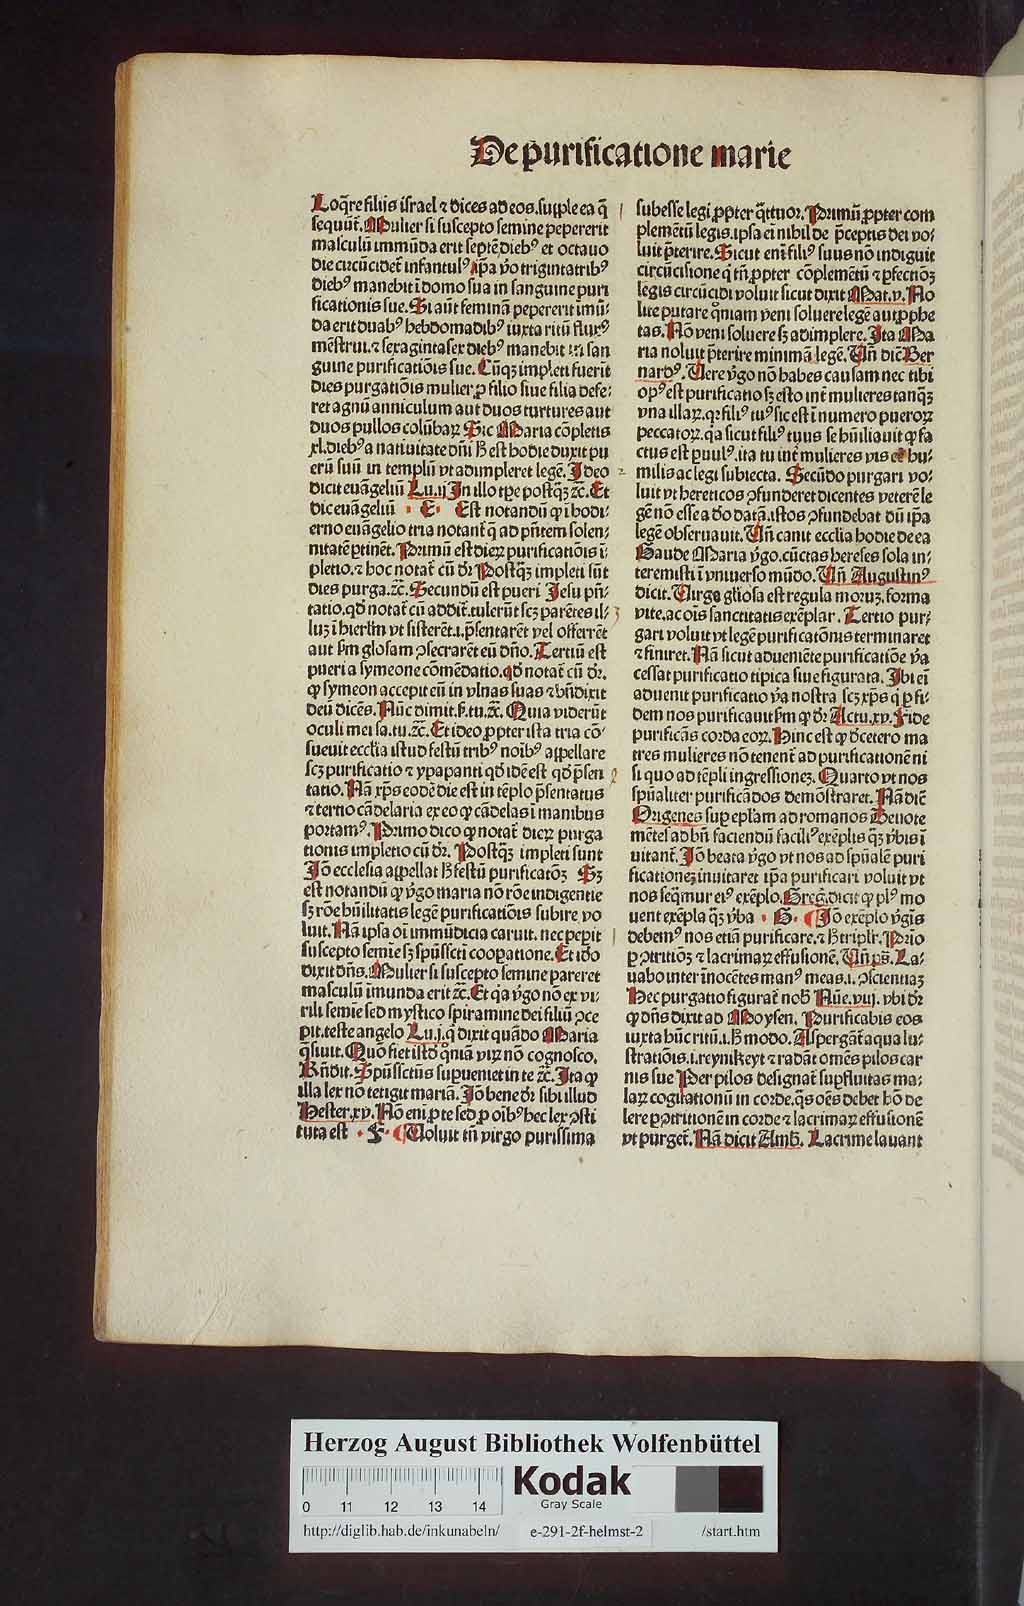 De purificatione marie
Loq̄re filijs israel ⁊ dices ad eos. supple ea q̄
sequūt᷑. Mulier si suscepto semine pepererit
masculū immūda erit septē dieb⁹ et octauo
die circūcidet᷑ infantul⁹ ip̄a v̄o triginta trib⁹
dieb⁹ manebit ī domo sua in sanguine puri
ficationis sue. Si aūt feminā pepererit imū⸗
da erit duab⁹ hebdomadib⁹ iuxta ritū flux⁹
mēstrui. ⁊ sexaginta sex dieb⁹ manebit in san
guine purificatiōis sue. Cūq̄ꝫ impleti fuerit
dies purgatiōis mulier ꝓ filio siue filia defe⸗
ret agnū anniculum aut duos turtures aut
duos pullos colūbaꝝ Sic Maria cōpletis
xl. dieb⁹ a natiuitate dn̄i h̄ est hodie duxit pu
erū suū in templū vt adimpleret legē. Ideo
dicit euāgeliū Lu.ij In illo tꝑe postq̄ꝫ ⁊c̄. Et
dic euāgeliū · E · Est notandū ꝙ ī hodi⸗
erno euāgelio tria notant᷑ q̄ ad pn̄tem solen⸗
nitatē ꝑtinēt. Primū est dieꝝ purificatiōis ī⸗
pletio. ⁊ hoc notat᷑ cū dr̄ Postq̄ꝫ impleti sūt
dies purga. ⁊c̄. Secundū est pueri Jesu pn̄⸗
tatio. qd̄ notat᷑ cū addit᷑. tulerūt scꝫ parētes il⸗
luꝫ ī hierlm̄ vt sisterēt. i. p̄sentarēt vel offerrēt
aut ẜm glosam ꝯsecrarēt eū dn̄o. Tertiū est
pueri a symeone cōmēdatio. qd̄ notat᷑ cū dr̄.
ꝙ symeon accepit eū in vlnas suas ⁊ bn̄dixit
deū dicēs. Nūc dimit. ẜ. tu. ⁊c̄. Quia viderūt
oculi mei sa. tu. ⁊c̄. Et ideo ꝓpter ista tria cō⸗
sueuit ecclīa istud festū trib⁹ noīb⁹ appellare
scꝫ purificatio ⁊ ypapanti qd̄ idē est qd̄ p̄sen
tatio. Nā xp̄s eodē die est in tēplo p̄sentatus
⁊ tertio cādelaria ex eo ꝙ cādelas ī manibus
portam⁹. Primo dico ꝙ notat᷑ dieꝝ purga
tionis impletio cū dr̄. Postq̄ꝫ impleti sunt
Iō ecclesia appellat h̄ festū purificatōꝫ Sꝫ
est notandū ꝙ v̄go maria nō rōe indigentie
sꝫ rōe hūilitatis legē purificatiōis subire vo
luit. Nā ipsa oī immūdicia caruit. nec peꝑit
suscepto semīe sꝫ spūssct̄i cooꝑatione. Et iō
dixit dn̄s. Mulier si suscepto semine pareret
masculū īmunda erit ⁊c̄. Et q̄a v̄go nō ex vi⸗
rili semīe sed mystico spiramine dei filiū ꝯce
pit. teste angelo Lu.j. q̄ dixit quādo Maria
q̄siuit. Quō fiet istd̄ qm̄ia virꝝ nō cognosco.
Rn̄dit. Spūssct̄us suꝑueniet in te ⁊c̄. Ita ꝙ
illa lex nō tetigit mariā. Iō bene dr̄ sibi illud
Hester.xv. Nō enī ꝓ te sed ꝓ oīb⁹ hec lex ꝯsti
tuta est · F · Uoluit tn̄ virgo purissima
subesse legi ꝓpter q̄ttuor. Primū ꝓpter com
plemētū legis. ipsa eī nihil de p̄ceptis dei vo⸗
luit p̄terire. Sicut em̄ fili⁹ suus nō indiguit
circūcisione q̄ tn̄ ꝓpter cōplemētū ⁊ ꝑfectiōꝫ
legis circūcidi voluit sicut dixit Mat.v. No
lite putare qm̄iam veni soluere legē aut ꝓphe
tas. Nō veni soluere sꝫ adimplere. Ita Ma
ria noluit p̄terire minimā legē. Un̄ dic̄ Ber
nard⁹. Uere v̄go nō habes causam nec tibi
op⁹ est purificatio sꝫ esto int᷑ mulieres tanq̄ꝫ
vna illaꝝ. qꝛ fili⁹ tu⁹ sic est ī numero pueroꝝ
peccatoꝝ. q̄a sicut fili⁹ tuus se hūiliauit ꝙ fa
ctus est ꝑuul⁹. ita tu int᷑ mulieres vis eē hu⸗
milis ac legi subiecta. Secūdo purgari vo⸗
luit vt hereticos ꝯfunderet dicentes veterē le
gē nō esse a d̄o datā. istos ꝯfundebat dū ip̄a
legē obseruauit. Un̄ canit ecclīa hodie de ea
Gaude Maria v̄go. cūctas hereses sola in⸗
teremisti ī vniuerso mūdo. Un̄ Augustin⁹
dicit. Uirgo gl̄iosa est regula moruꝫ. forma
vite. ac oīs sanctitatis exēplar. Tertio pur⸗
gari voluit vt legē purificatōnis terminaret
⁊ finiret. Nā sicut adueniēte purificatiōe v̄a
cessat purificatio tipica siue figurata. Ibi eī
aduenit purificatio v̄a nostra scꝫ xp̄s q̄ ꝑ fi⸗
dem nos purificauit ẜm ꝙ dr̄ Actu.xv. Fide
purificās corda eoꝝ. Hinc est ꝙ d̄cetero ma
tres mulieres nō tenent᷑ ad purificationē ni
si quo ad tēpli ingressioneꝫ. Quarto vt nos
spūaliter purificādos demōstraret. Nā dic̄
Origenes suꝑ epl̄am ad romanos Deuote
mētes ad bn̄ faciendū facili⁹ exēplis q̄ꝫ v̄bis ī
uitant᷑. Iō beata v̄go vt nos ad spūalē puri
ficationeꝫ inuitaret ip̄a purificari voluit vt
nos seq̄mur ei⁹ exēplo. Greg. dicit ꝙ pl⁹ mo
uent exēpla q̄ꝫ v̄ba · G · Iō exēplo v̄gīs
debem⁹ nos etiā purificare. ⁊ h̄ triplr̄. Prīo
ꝑ ꝯtritiōꝫ ⁊ lacrimaꝝ effusionē. Un̄ ps̄. La⸗
uabo inter īnocētes man⁹ meas. i. ꝯscientiaꝫ
Hec purgatio figurat᷑ nob̄ Nūe.viij. vbi dr̄
ꝙ dn̄s dixit ad Moysen. Purificabis eos
iuxta hūc ritū. i. h̄ modo. Aspergāt᷑ aqua lu⸗
strationis. i. reynikeyt ⁊ radāt omēs pilos car
nis sue Per pilos designat᷑ suꝑfluitas ma⸗
laꝝ cogitationū in corde. q̄s oēs debet hō de
lere ꝑ ꝯtritionē in corde ⁊ lacrimaꝝ effusionē
vt purget᷑. Nā dicit Amb̄. Lacrime lauant
Herzog August Bibliothek Wolfenbüttel
0 11 12 13 14
Kodak
Gray Scale
http://diglib.hab.de/inkunabeln/ e-291-2f-helmst-2 /start.htm